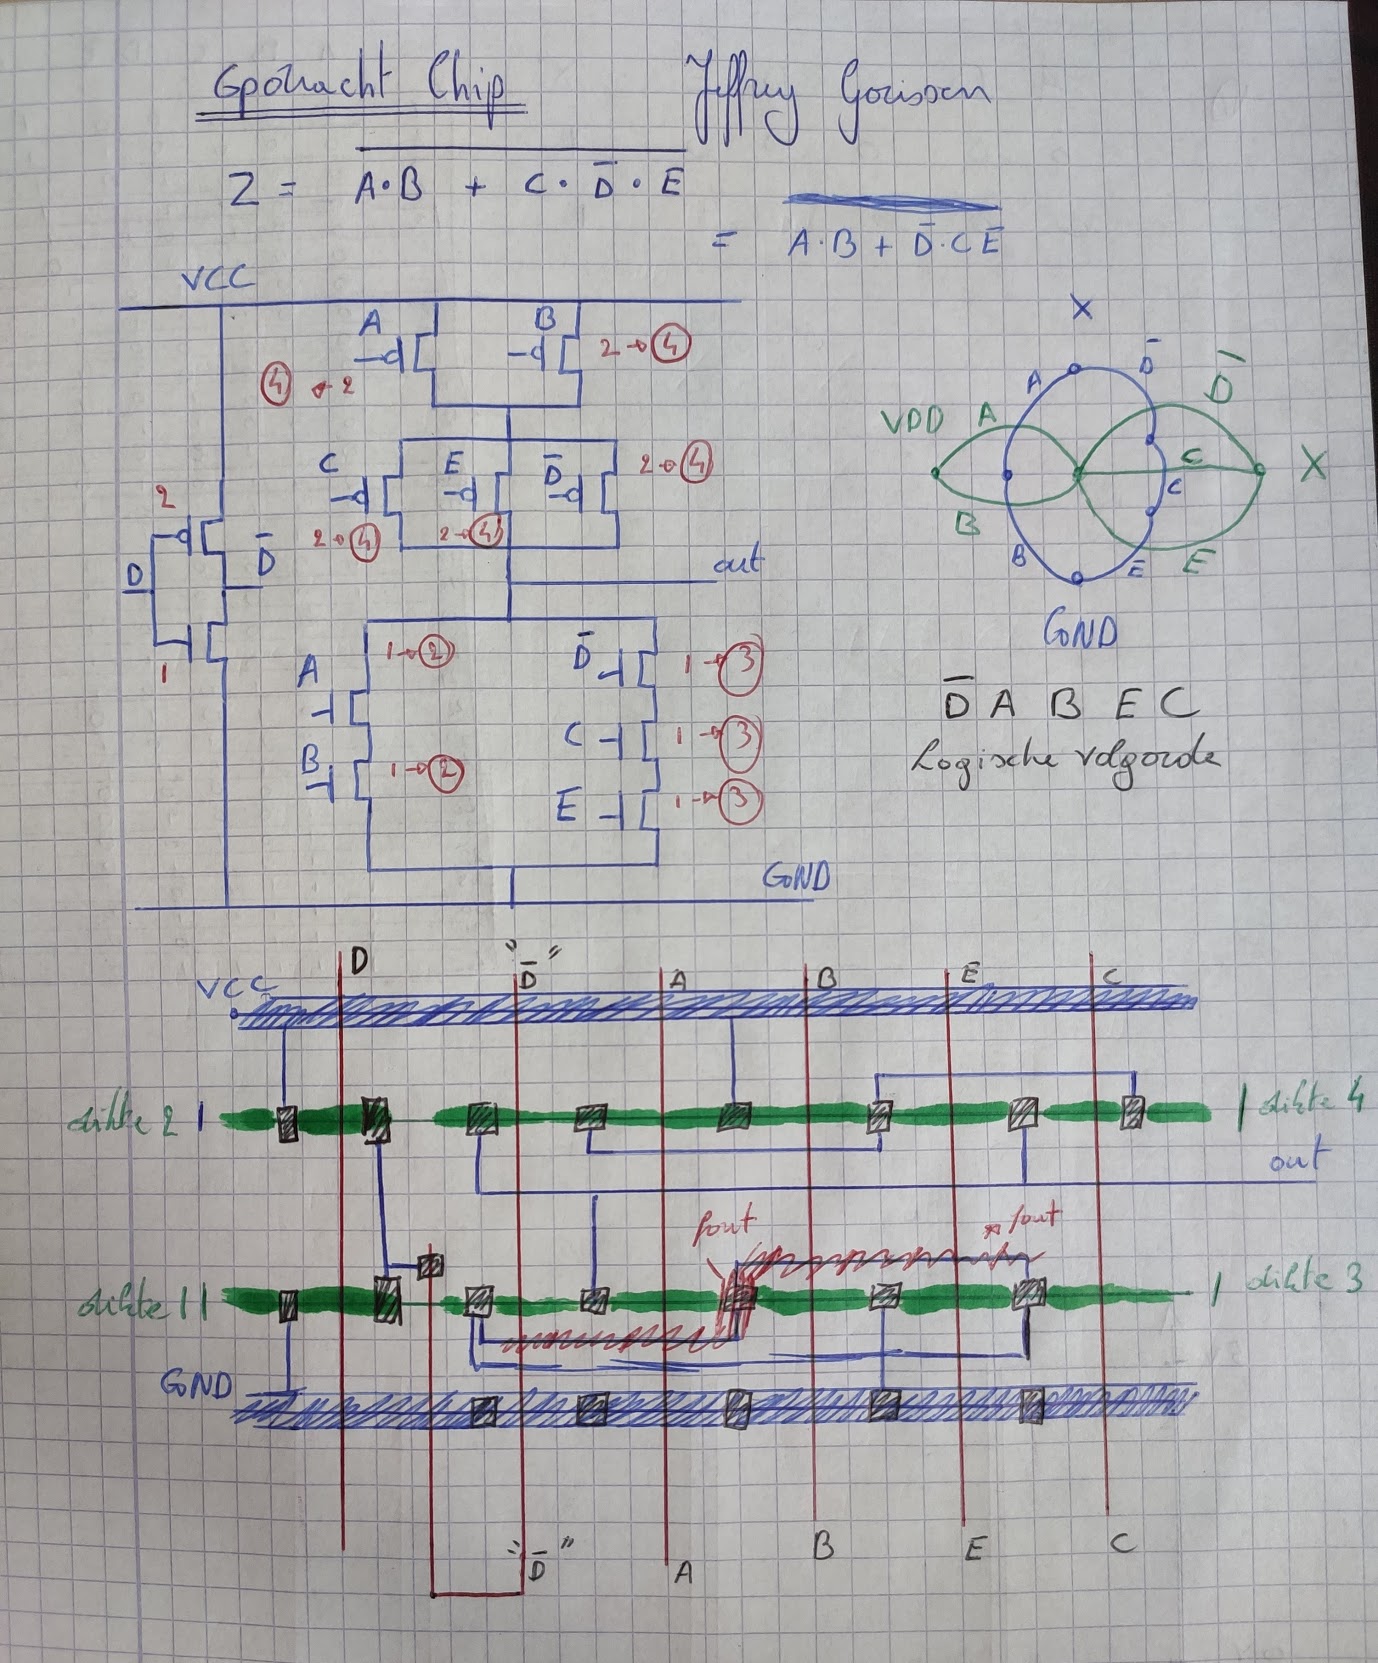 Opdracht Chip Jeffrey Gorissen
Z = \overline{A·B + C·D̄·E}
= \overline{A·B + D̄·C E}
VCC
A B 2→④
④←2
C E D̄ 2→④
2→④ 2→④
2
D D̄
out
1
A 1→② D̄ 1→③
C 1→③
B 1→② E 1→③
GND
X
A D̄ D̄
VDD A
C X
C
B
B E E
GND
D̄ A B E C
Logische volgorde
D "D̄" A B E C
VCC
dikte 2 | | dikte 4
out
fout * fout
dikte 1 | | dikte 3
GND
"D̄" A B E C